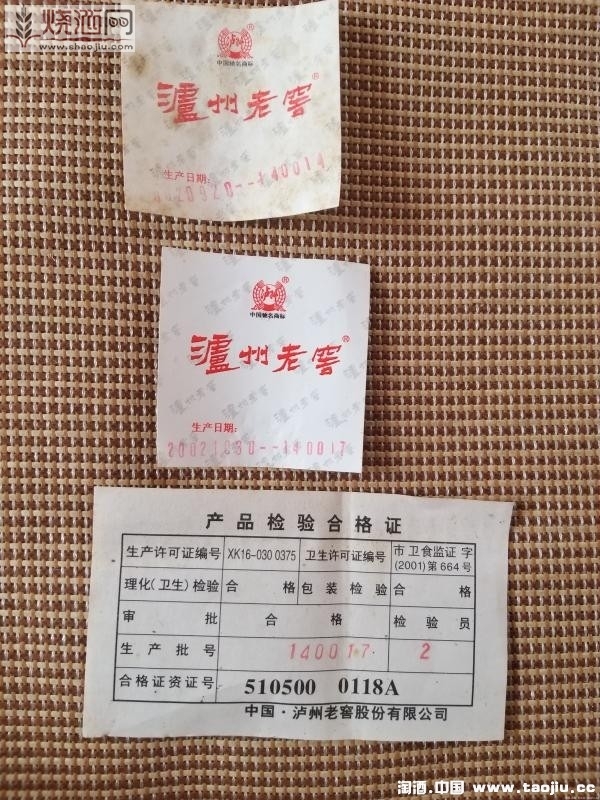 烧酒网
www.shaojiu.com
中国驰名商标
泸州老窖®
生产日期:
®
中国驰名商标
泸州老窖®
生产日期:
20021030--140017
产品检验合格证
生产许可证编号 XK16-030 0375 卫生许可证编号 市卫食监证字(2001)第664号
理化(卫生)检验 合格 包装检验 合格
审批 合格 检验员
生产批号 140017 2
合格证资证号 510500 0118A
中国·泸州老窖股份有限公司
淘酒.中国 www.taojiu.cc